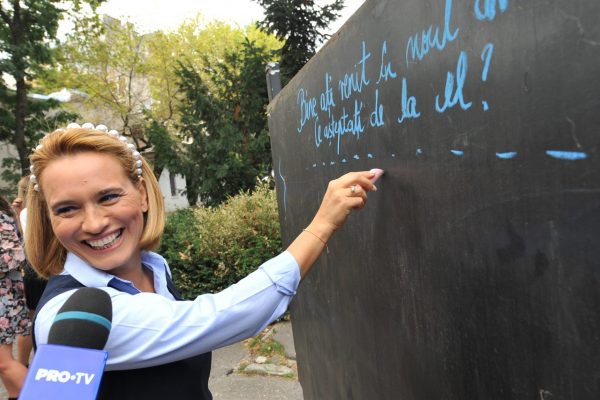 Bine ați venit în noul
Ce așteptați de la el?
PRO•TV